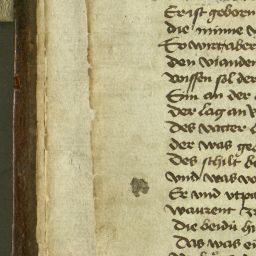 Er ist geborn
die minne
So wirt aber
den vianden
wissen sol der
Sin an der
der lag an
Des vatter
der was ge
Des schilt
vnd was vo
Er vnd vtpa
waurent z
Die beidu hi
Das was ei